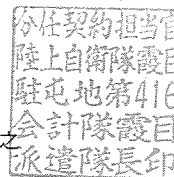 分任契約担当官
陸上自衛隊霞目
駐屯地第416
会計隊霞目
派遣隊長印
之